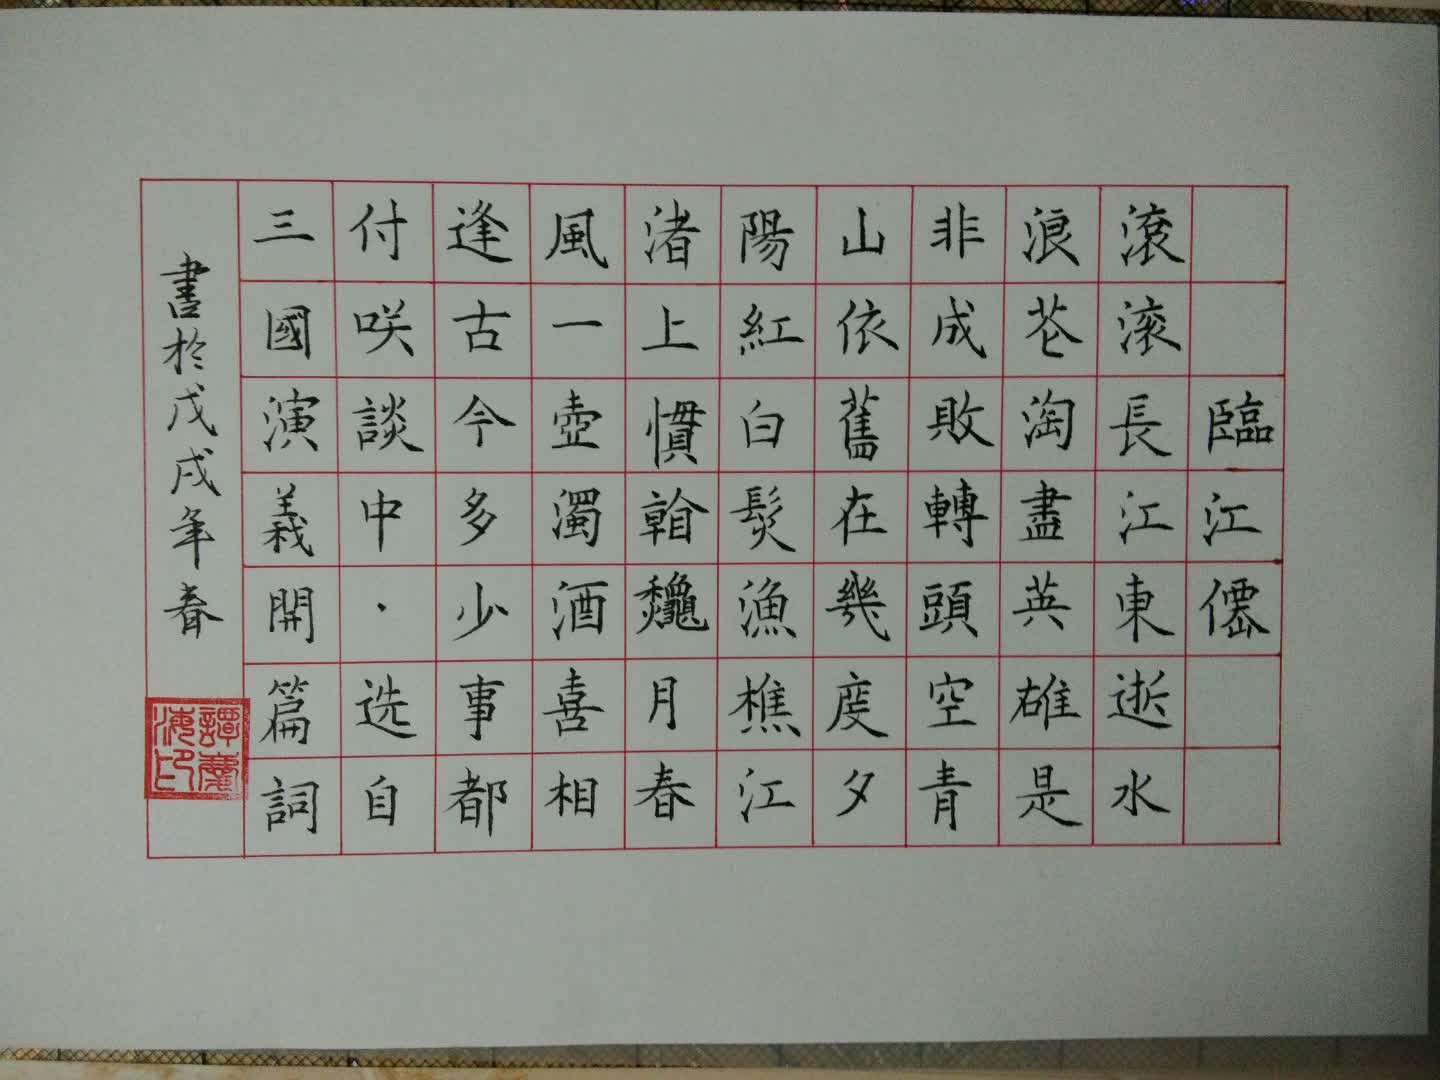 臨江僊
滾滚長江東逝水
浪苍淘盡英雄是
非成敗轉頭空青
山依舊在幾度夕
陽紅白髮漁樵江
渚上慣看龝月春
風一壺濁酒喜相
逢古今多少事都
付咲談中·选自
三國演義開篇詞
書於戊戌年春
譚慶海印